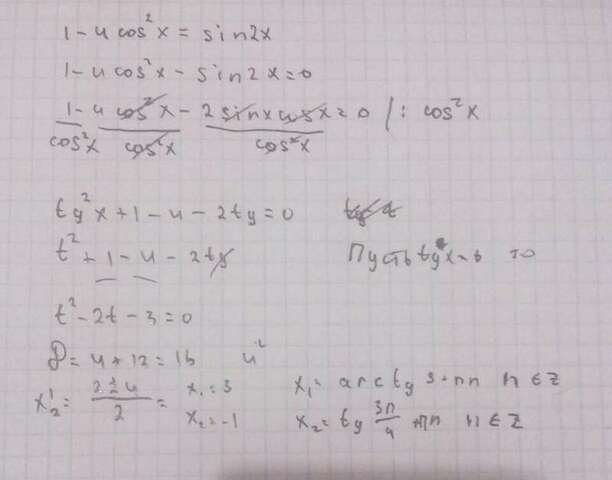 1 - 4 cos²x = sin2x
1 - 4 cos²x - sin2x = 0
1 - 4 cos²x - 2 sinx cosx = 0 / : cos²x
cos²x cos²x cos²x
tg²x + 1 - 4 - 2tg = 0
t² + 1 - 4 - 2t Пусть tg x = t то
t² - 2t - 3 = 0
D = 4 + 12 = 16 4²
x½ = 2 ± 4 / 2 = x₁ = 3 x₁ = arctg 3 + πn n ∈ Z
x₂ = -1 x₂ = tg 3π/4 + πn n ∈ Z